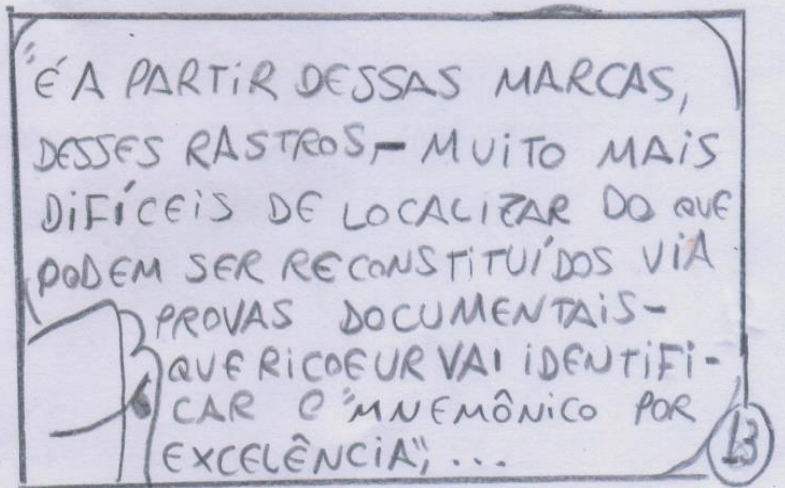 "É A PARTIR DESSAS MARCAS,
DESSES RASTROS,- MUITO MAIS
DIFÍCEIS DE LOCALIZAR DO QUE
PODEM SER RECONSTITUÍDOS VIA
PROVAS DOCUMENTAIS-
QUE RICOEUR VAI IDENTIFI-
CAR O "MNEMÔNICO POR
EXCELÊNCIA", ...
13